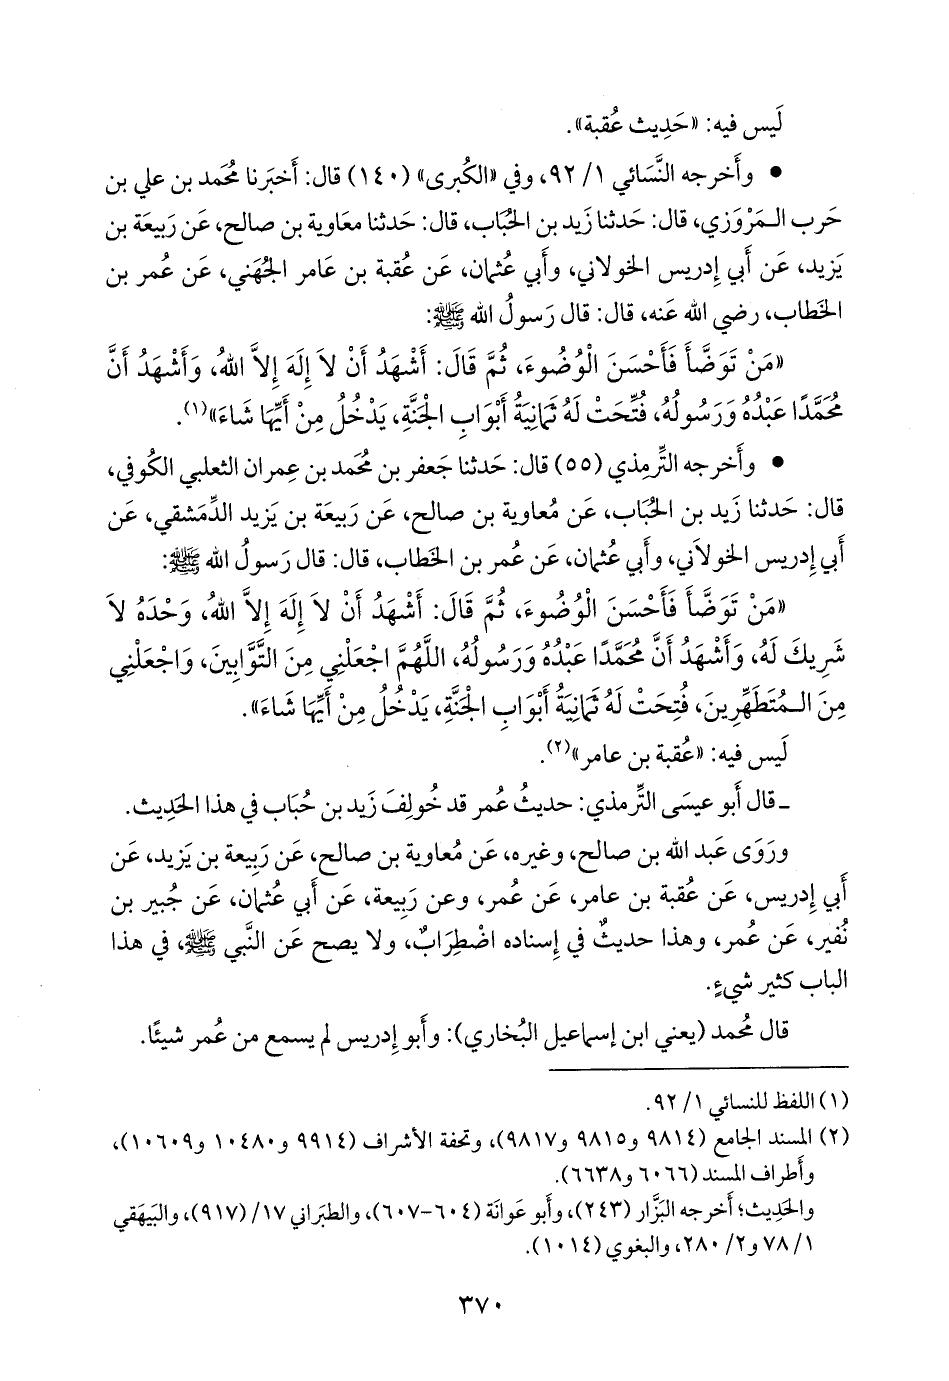 لَيس فيه: «حَدِيث عُقبة».
• وأَخرجه النَّسَائي ١/ ٩٢، وفي «الكُبرى» (١٤٠) قال: أَخبَرنا مُحَمد بن علي بن
حَرب الـمَرْوَزي، قال: حَدثنا زَيد بن الحُبَاب، قال: حَدثنا معَاوية بن صالح، عَن رَبِيعَة بن
يَزيد، عَن أَبي إِدريس الخولاني، وأَبي عُثمان، عَن عُقبة بن عَامر الجُهَني، عَن عُمر بن
الخَطاب، رضي الله عَنه، قال: قال رَسولُ الله ﷺ:
«مَنْ تَوَضَّأَ فَأَحْسَنَ الْوُضُوءَ، ثُمَّ قَالَ: أَشْهَدُ أَنْ لاَ إِلَهَ إِلاَّ اللهُ، وَأَشْهَدُ أَنَّ
مُحَمَّدًا عَبْدُهُ وَرَسُولُهُ، فُتِّحَتْ لَهُ ثَمَانِيَةُ أَبْوَابِ الْجَنَّةِ، يَدْخُلُ مِنْ أَيِّهَا شَاءَ»(١).
• وأَخرجه التِّرمِذي (٥٥) قال: حَدثنا جَعفر بن مُحَمد بن عِمران الثعلبي الكُوفي،
قال: حَدثنا زَيد بن الحُبَاب، عَن مُعاوية بن صالح، عَن رَبيعَة بن يَزيد الدِّمَشقي، عَن
أَبي إِدريس الخولاَني، وأَبي عُثمان، عَن عُمر بن الخَطاب، قال: قال رَسولُ الله ﷺ:
«مَنْ تَوَضَّأَ فَأَحْسَنَ الْوُضُوءَ، ثُمَّ قَالَ: أَشْهَدُ أَنْ لاَ إِلَهَ إِلاَّ اللهُ، وَحْدَهُ لاَ
شَرِيكَ لَهُ، وَأَشْهَدُ أَنَّ مُحَمَّدًا عَبْدُهُ وَرَسُولُهُ، اللَّهُمَّ اجْعَلْنِي مِنَ التَّوَّابِينَ، وَاجْعَلْنِي
مِنَ الـمُتَطَهِّرِينَ، فُتِحَتْ لَهُ ثَمَانِيَةُ أَبْوَابِ الْجَنَّةِ، يَدْخُلُ مِنْ أَيِّهَا شَاءَ».
لَيس فيه: «عُقبة بن عامر»(٢).
ـ قال أَبو عيسَى التِّرمذي: حديثُ عُمر قد خُولِفَ زَيد بن حُبَاب في هذا الحَدِيث.
ورَوَى عَبد الله بن صالح، وغيره، عَن مُعاوية بن صالح، عَن رَبِيعة بن يَزيد، عَن
أَبي إِدريس، عَن عُقبة بن عامر، عَن عُمر، وعن رَبِيعة، عَن أَبي عُثمان، عَن جُبير بن
نُفير، عَن عُمر، وهذا حديثٌ في إِسناده اضْطِرَابٌ، ولا يصح عَن النَّبي ﷺ، في هذا
الباب كثير شيءٍ.
قال مُحمد (يعني ابن إسماعيل البُخاري): وأَبو إِدريس لم يسمع من عُمر شيئًا.
(١) اللفظ للنسائي ١/ ٩٢.
(٢) المسند الجامع (٩٨١٤ و٩٨١٥ و٩٨١٧)، وتحفة الأشراف (٩٩١٤ و١٠٤٨٠ و١٠٦٠٩)،
وأَطراف المسند (٦٠٦٦ و٦٦٣٨).
والحَدِيث؛ أخرجه البَزَّار (٢٤٣)، وأبو عَوانَة (٦٠٤-٦٠٧)، والطبَراني ١٧/ (٩١٧)، والبَيهَقي
١/ ٧٨ و٢/ ٢٨٠، والبغوي (١٠١٤).
٣٧٠